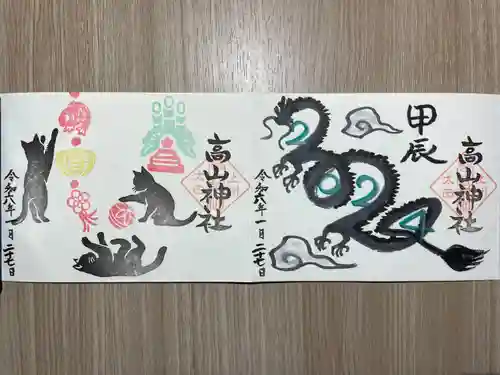 高山神社
令和六年一月二十七日
甲辰
2024
高山神社
令和六年一月二十七日